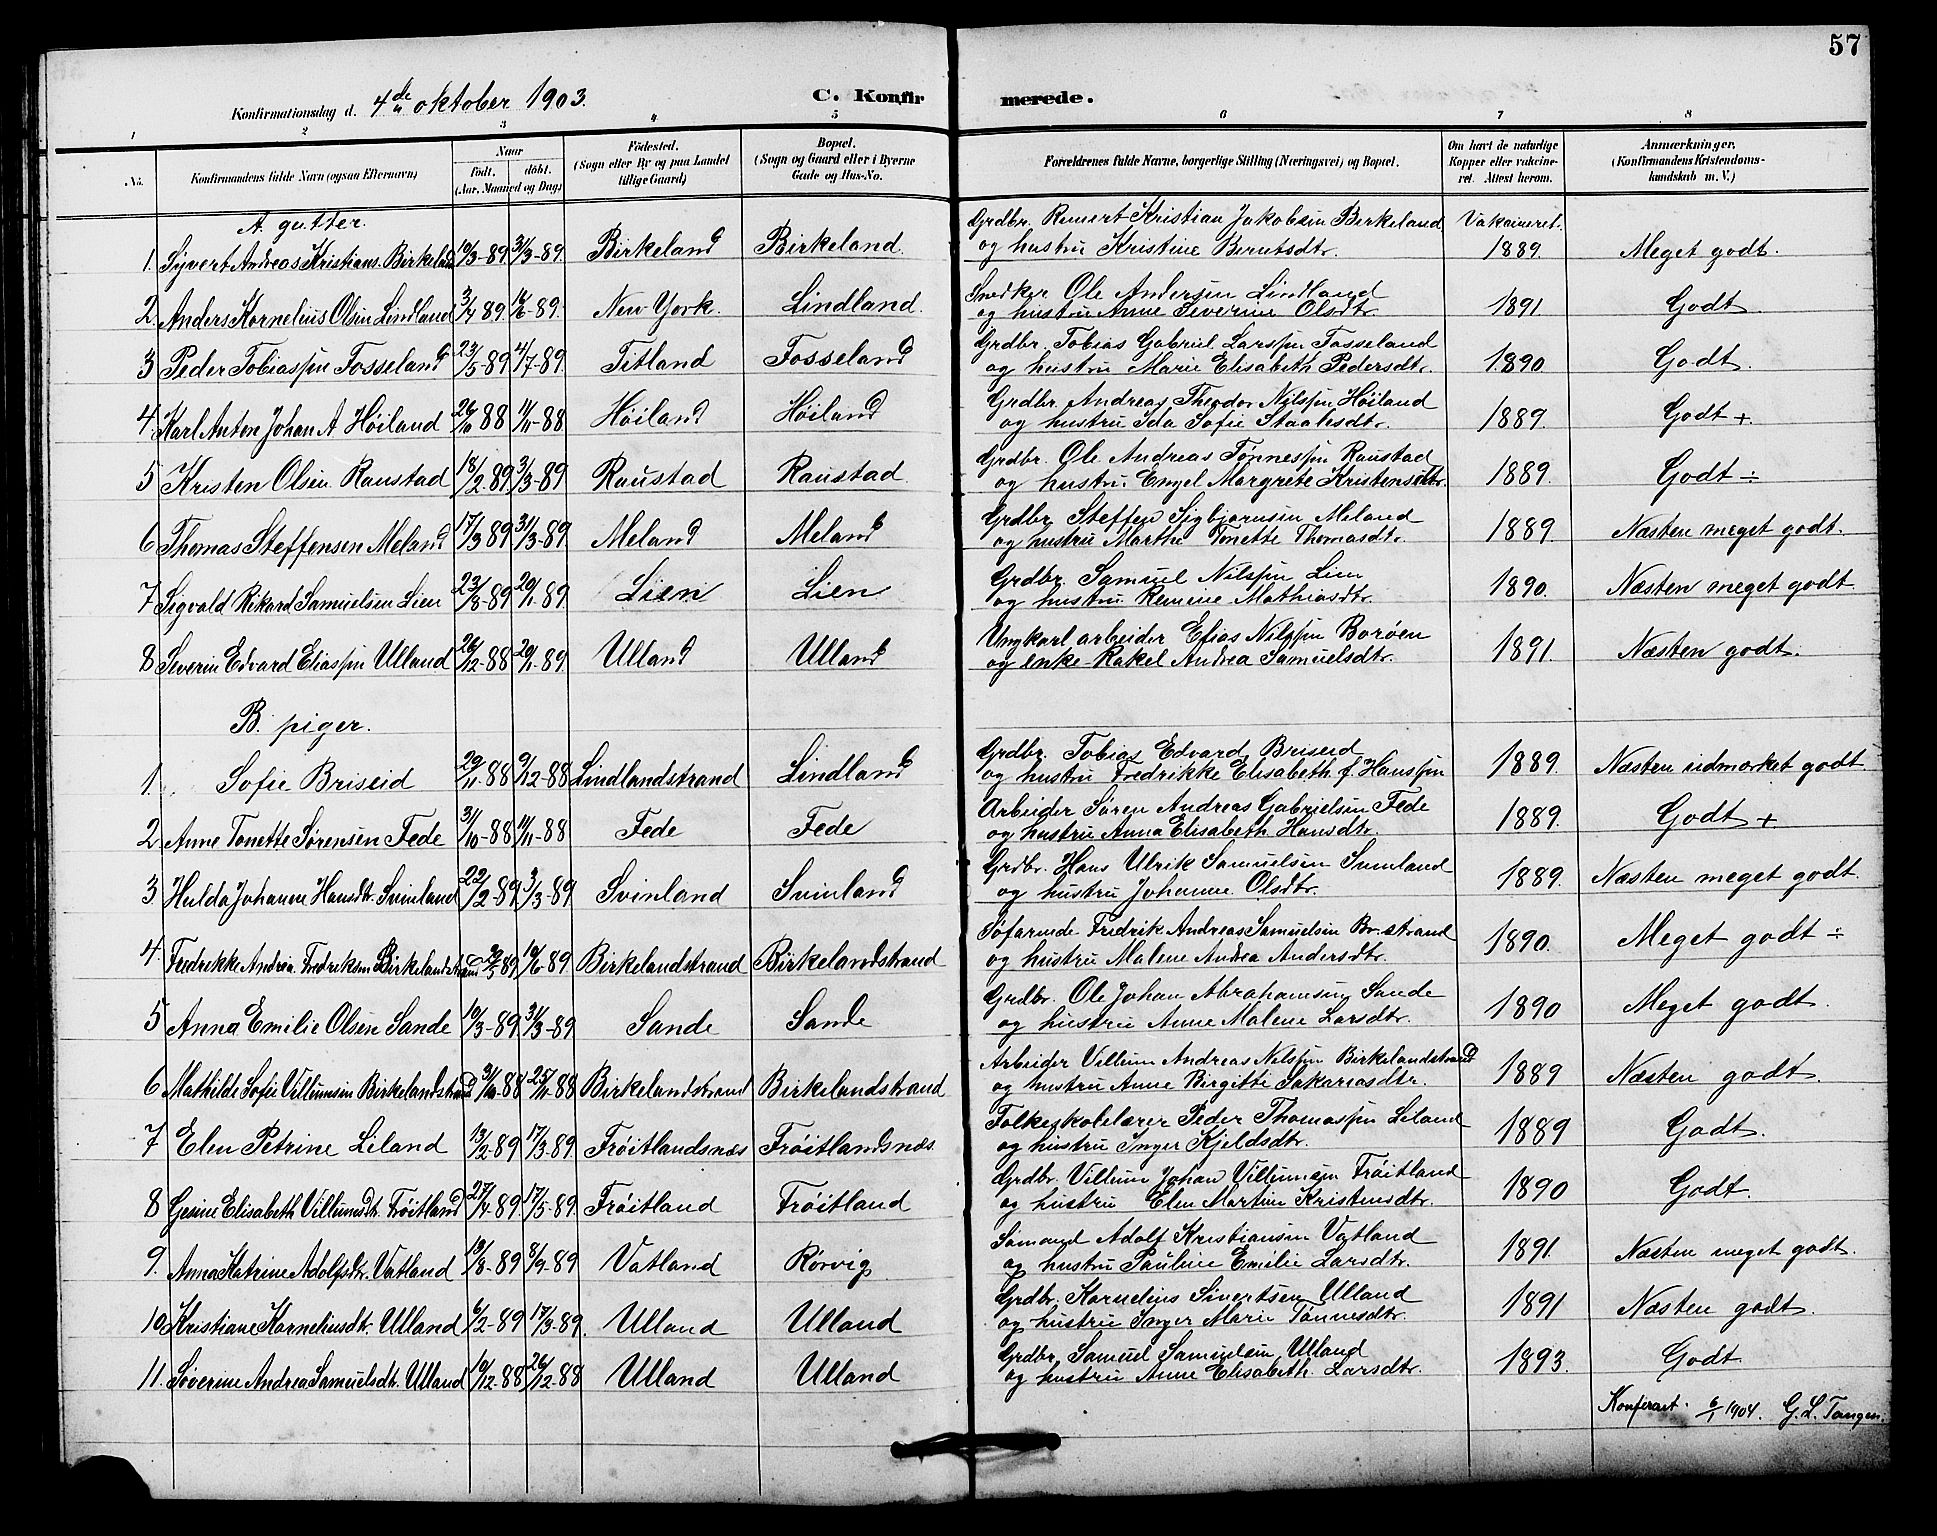 57
Konfirmationsdag d. 4de oktober 1903. C. Konfirmerede.
1 2 3 4 5 6 7 8
No. Konfirmandens fulde Navn (ogsaa Efternavn) Naar Födt. döbt. (Aar, Maaned og Dag) Födested. (Sogn eller By og paa Landet tillige Gaard) Bopæl. (Sogn og Gaard eller i Byerne Gade og Hus-No. Forældrenes fulde Navne, borgerlige Stilling (Næringsvei) og Bopæl. Om havt de naturlige Kopper eller vakcineret. Attest herom. Anmærkninger. (Konfirmandens Kristendomskundskab m. V.)
A. gutter.
1. Syvert Andreas Kristians. Birkeland 19/3-89 31/3-89 Birkeland Birkeland. Grdbr. Reinert Kristian Jakobsen Birkeland Vakcineret.
og hustru Kristine Berntsdtr. 1889. Meget godt.
2 Anders Kornelius Olsen Lindland 3/4 89 16/6-89. New-York. Lindland. Snedker Ole Andersen Lindland
og hustru Anne Severine Olsdtr. 1891. Godt.
3 Peder Tobiassen Fosseland 23/5-89 4/7-89. Titland Fosseland Grdbr. Tobias Gabriel Larssen Fosseland
og hustru Marie Elisabeth Pedersdtr. 1890 Godt.
4 Karl Anton Johan A Höiland 26/10 88 11/11-88 Höiland Höiland Grdbr. Andreas Theodor Nilssen Höiland
og hustru Ida Sofie Staalesdtr. 1889. Godt +.
5 Kristen Olsen Raustad 18/2-89 3/3-89 Raustad Raustad. Grdbr. Ole Andreas Tönnessen Raustad
og hustru Engel Margrete Kristensdtr. 1889. Godt ÷
6 Thomas Steffensen Meland 17/3 89 31/3-89 Meland Meland Grdbr Steffen Sigbjørnsen Meland
og hustru Marthe Tonette Thomasdtr. 1889. Næsten meget godt.
7 Sigvald Rikard Samuelsen Lien 23/8-89 20/1-89. Lien Lien Grdbr. Samuel Nilssen Lien
og hustru Remine Mathiasdtr. 1890. Næsten meget godt
8 Severin Edvard Eliassen Ulland 26/12-88 20/1-89. Ulland Ulland Ungkarl arbeider Elias Nilssen Borøen
og enke Rakel Andrea Samuelsdtr. 1891. Næsten godt.
B. piger.
1. Sofie Briseid 29/11-88 9/12-88 Lindlandstrand Lindland Grdbr. Tobias Edvard Briseid
og hustru Fredrikke Elisabeth f. Hanssen 1889. Næsten udmærket godt.
2 Anne Tonette Sørensen Fede 31/10-88 11/11-88 Fede Fede Arbeider Søren Andreas Gabrielsen Fede
og hustru Anna Elisabeth Hansdtr. 1889. Godt +
3 Hulda Johanne Hansdtr. Svinland 22/2-89 3/3-89 Svinland Svinland Grdbr. Hans Ulrik Samuelsen Svinland
og hustru Johanne Olsdtr. 1889. Næsten meget godt.
4. Fredrikke Andrea Fredriksen Birkelandstrand 89 10/6-89 Birkelandstrand Birkelandstrand Søfarende Fredrik Andreas Samuelsen Br.strand
og hustru Malene Andrea Andersdtr. 1890. Meget godt ÷
5 Anna Emilie Olsen Sande 10/3-89 31/3-89 Sande Sande Grdbr. Ole Johan Abrahamsen Sande
og hustru Anne Malene Larsdtr. 1890 Meget godt.
6 Mathilde Sofie Villumsen Birkelandstrand 31/10-88 25/11-88 Birkelandstrand Birkelandstrand Arbeider Villum Andreas Nilssen Birkelandstrand
og hustru Anne Birgitte Sakariasdtr. 1889 Næsten godt.
7 Elen Petrine Leland 13/2-89 17/3-89. Fröitlandsnæs Fröitlandsnæs. Folkeskolelærer Peder Thomassen Leland
og hustru Inger Kjeldsdtr. 1889 Godt.
8 Gesine Elisabeth Villumsdt. Fröitland 27/4-89 17/5-89. Fröitland Fröitland Grdbr. Villum Johan Villumsen Fröitland
og hustru Elen Martine Kristensdtr. 1890 Godt.
9. Anna Katrine Adolfsdtr. Vatland 13/8-89 8/9-89 Vatland Rørvig Sömand Adolf Kristiansen Vatland
og hustru Pauline Emilie Larsdtr. 1891. Næsten meget godt.
10. Kristiane Korneliusdtr. Ulland 6/2-89 17/3-89. Ulland Ulland Grdbr. Kornelius Sivertsen Ulland
og hustru Inger Marie Tönnesdtr. 1891 Næsten godt.
11. Severine Andrea Samuelsdt. Ulland 19/12-88 26/12-88 Ulland Ulland Grdbr. Samuel Samuelsen Ulland
og hustru Anne Elisabeth Larsdtr. 1893. Godt
Konferert. 6/1 1904. G. L. Tangen.